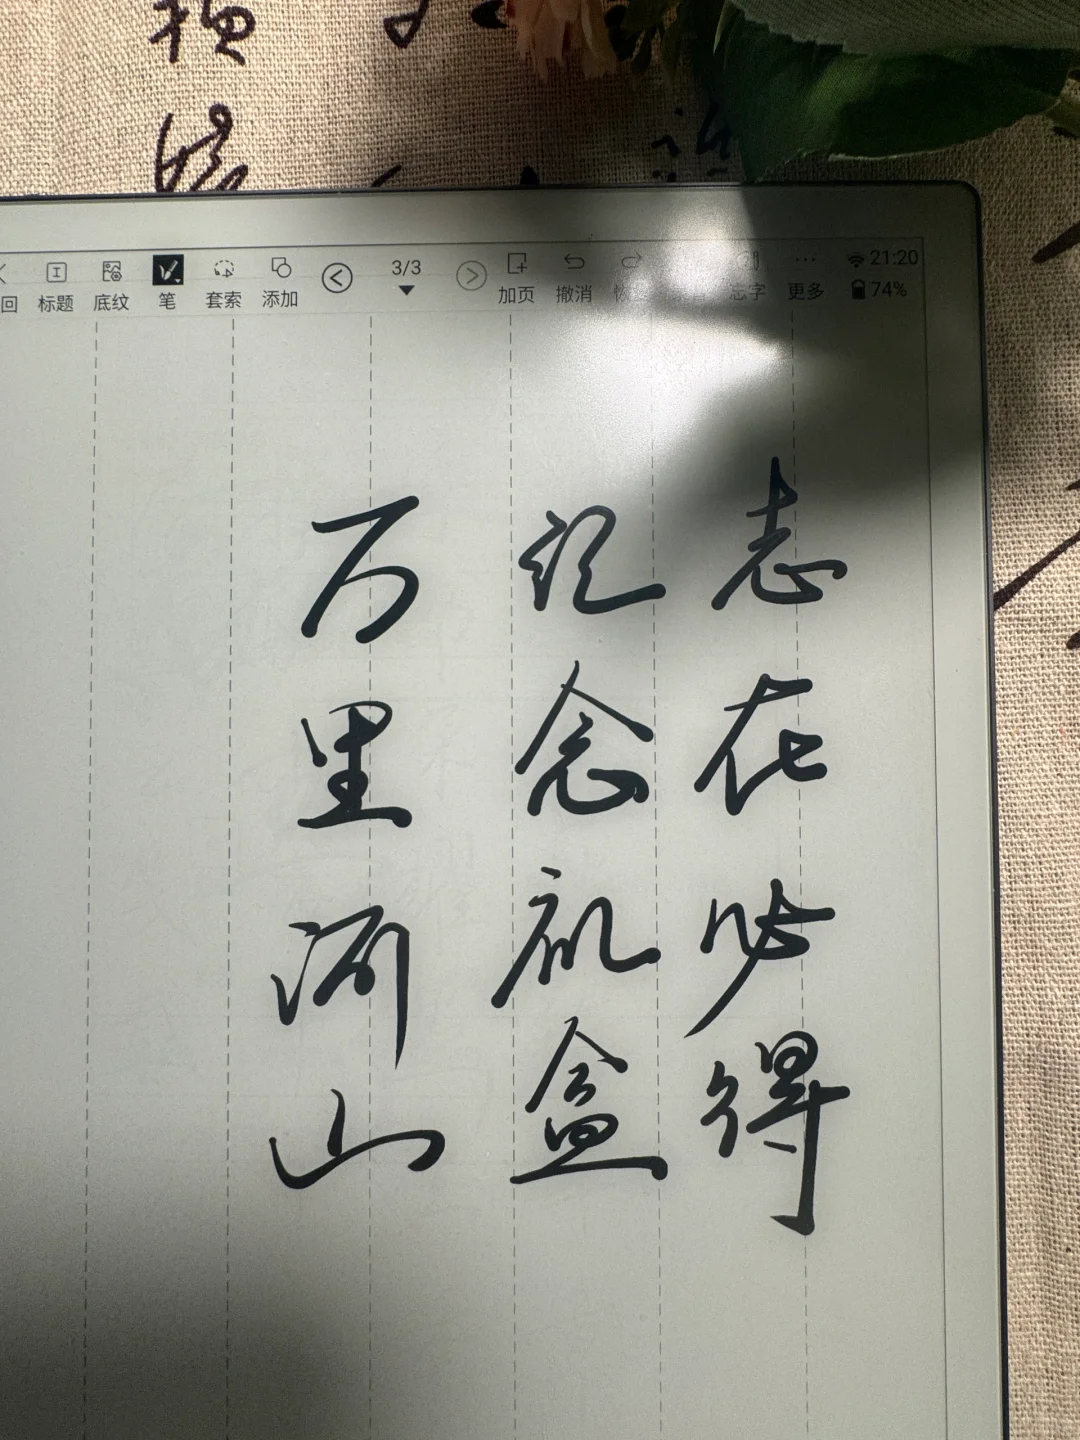 标题 底纹 笔 套索 添加 3/3 加页 撤消 忘字 更多
21:20
74%
志在必得
纪念礼盒
万里河山